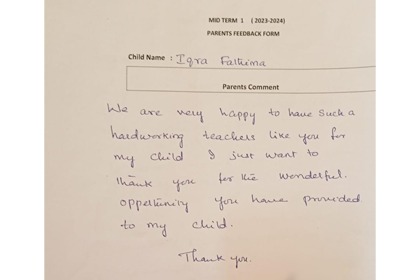 MID TERM 1 ( 2023-2024)
PARENTS FEEDBACK FORM
Child Name : Iqra Fathima
Parents Comment
We are very happy to have such a
hardworking teachers like you for
my child I just want to
thank you for the wonderful.
oppeltunity you have provided
to my child.
Thank you.